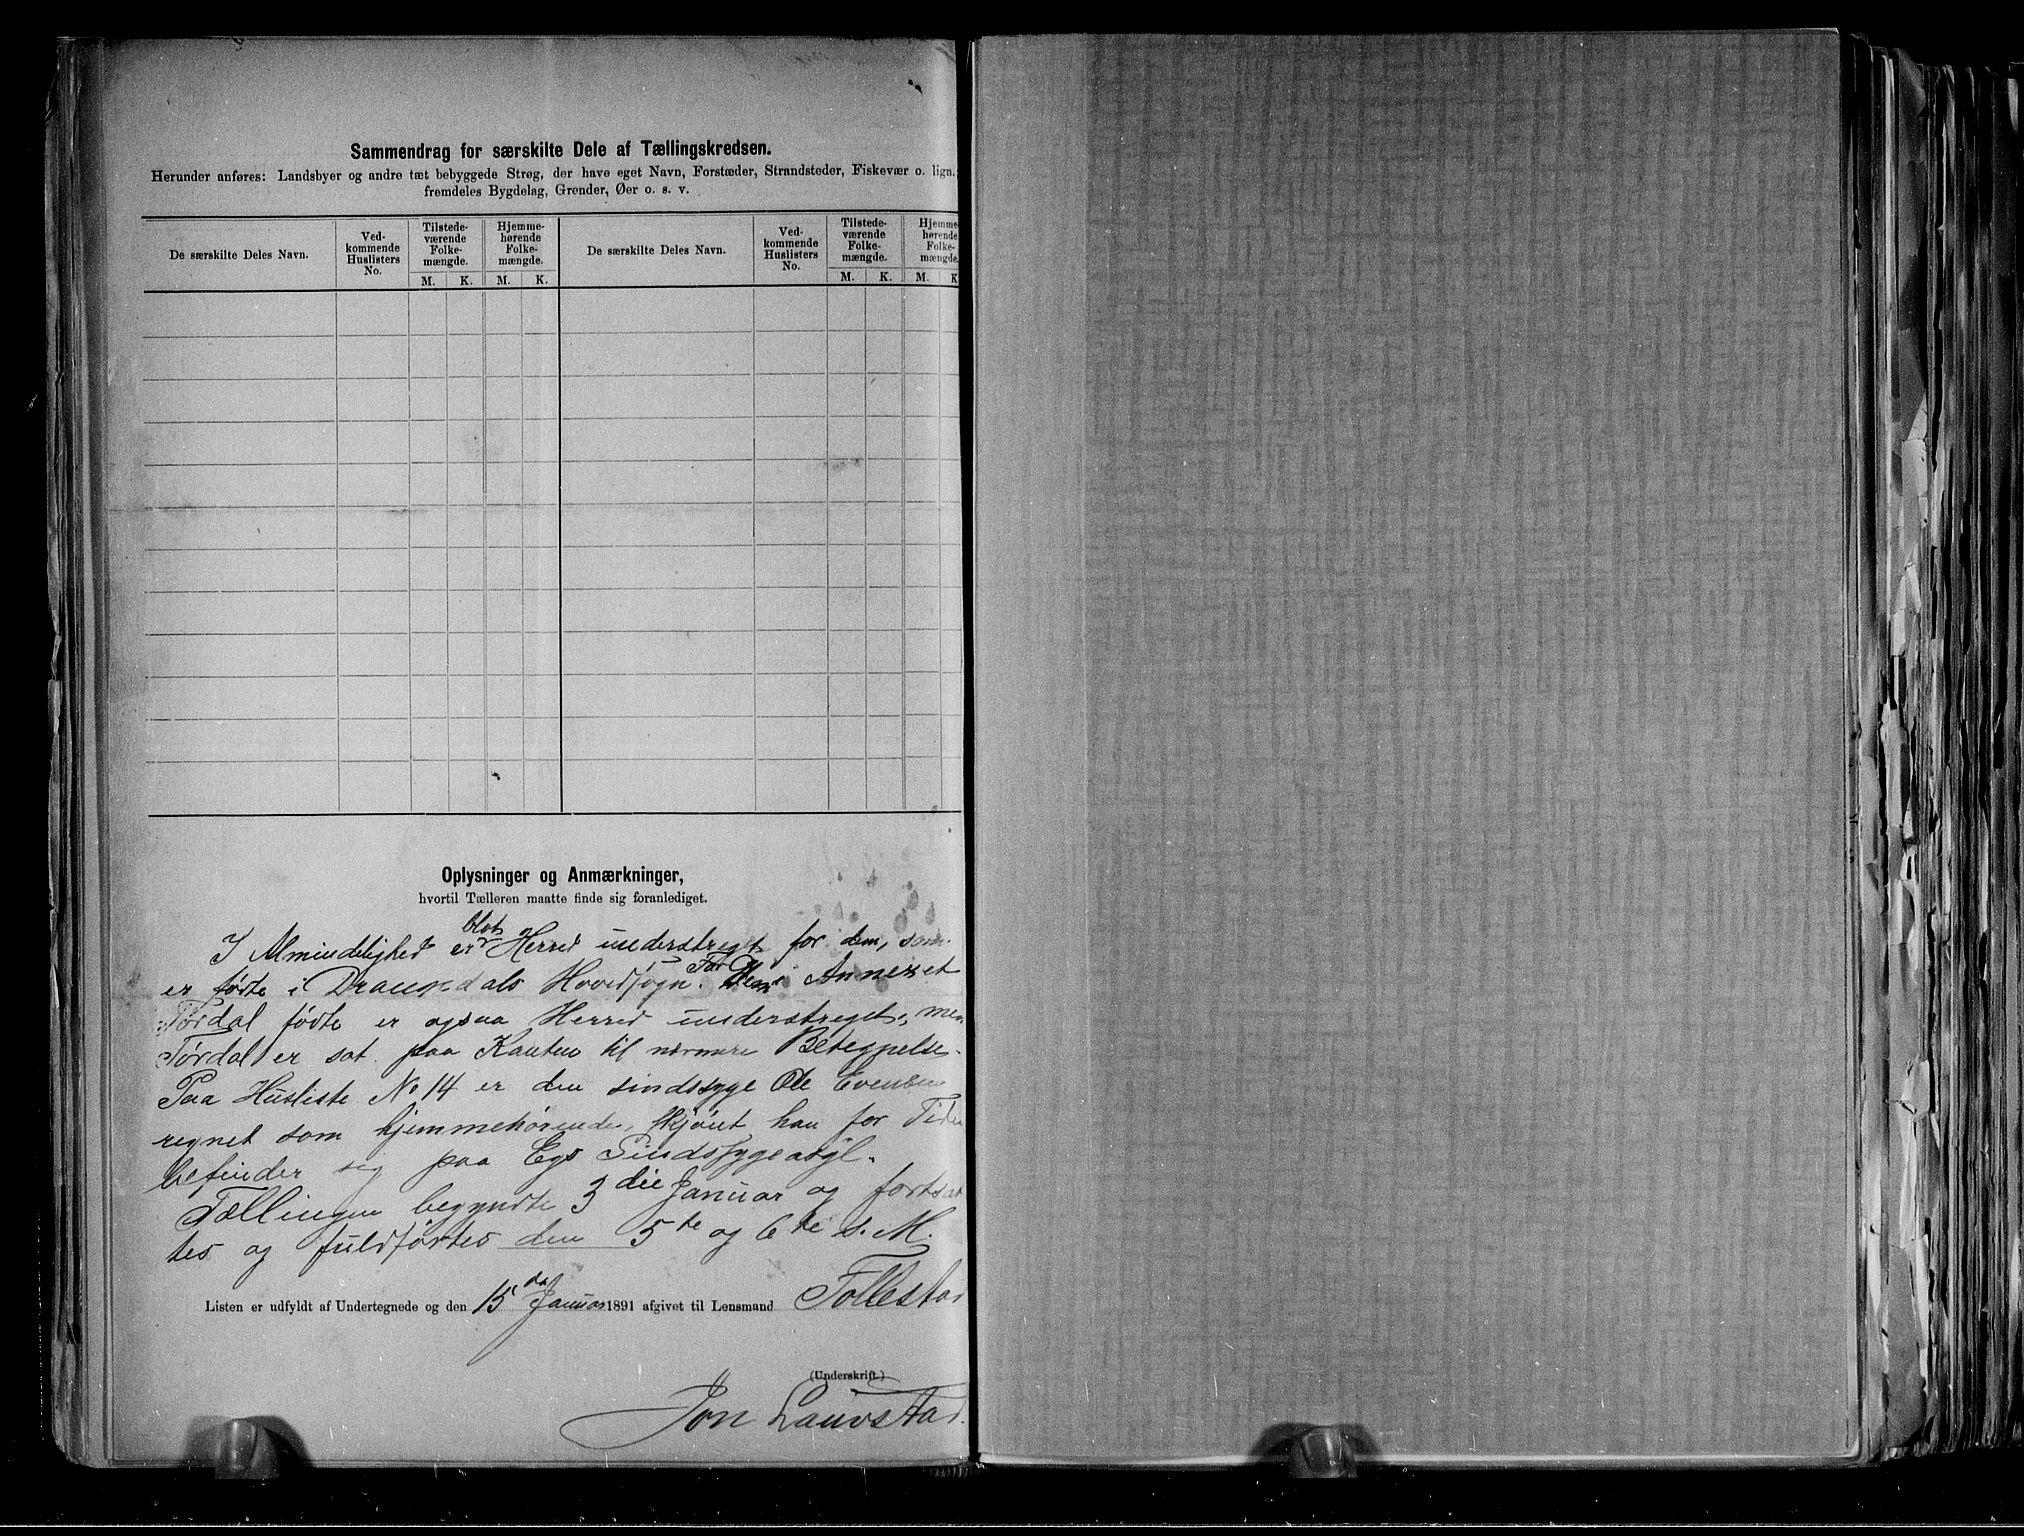 Sammendrag for særskilte Dele af Tællingskredsen.
Herunder anføres: Landsbyer og andre tæt bebyggede Strøg, der have eget Navn, Forstæder, Strandsteder, Fiskevær o. lign.
fremdeles Bygdelag, Grender, Øer o. s. v.
De særskilte Deles Navn.
Ved-
kommende
Huslisters
No.
Tilstede-
værende
Folke-
mængde.
M. K.
Hjemme-
hørende
Folke-
mængde.
M. K.
De særskilte Deles Navn.
Ved-
kommende
Huslisters
No.
Tilstede-
værende
Folke-
mængde.
M. K.
Hjemme-
hørende
Folke-
mængde.
M. K
Oplysninger og Anmærkninger,
hvortil Tælleren maatte finde sig foranlediget.
blot
I Almindelighed er Herred understreget for dem, som
er fødte i Drangedals Hovedsogn. For Dem i Annexet
Tørdal fødte er ogsaa Herred understreget, men
Tørdal er sat paa Kanten til nærmere Betegnelse.
Paa Husliste No 14 er den sindssyge Ole Evensen
regnet som hjemmehørende, skjønt han for Tiden
befinder sig paa Egs Sindssygeasyl.
Tællingen begyndte 3die Januar og fortsat
tes og fuldførtes den 5te og 6te s. M.
Listen er udfyldt af Undertegnede og den 15de Januar 1891 afgivet til Lensmand Tollestad
(Underskrift.)
Jon Lauvstad.